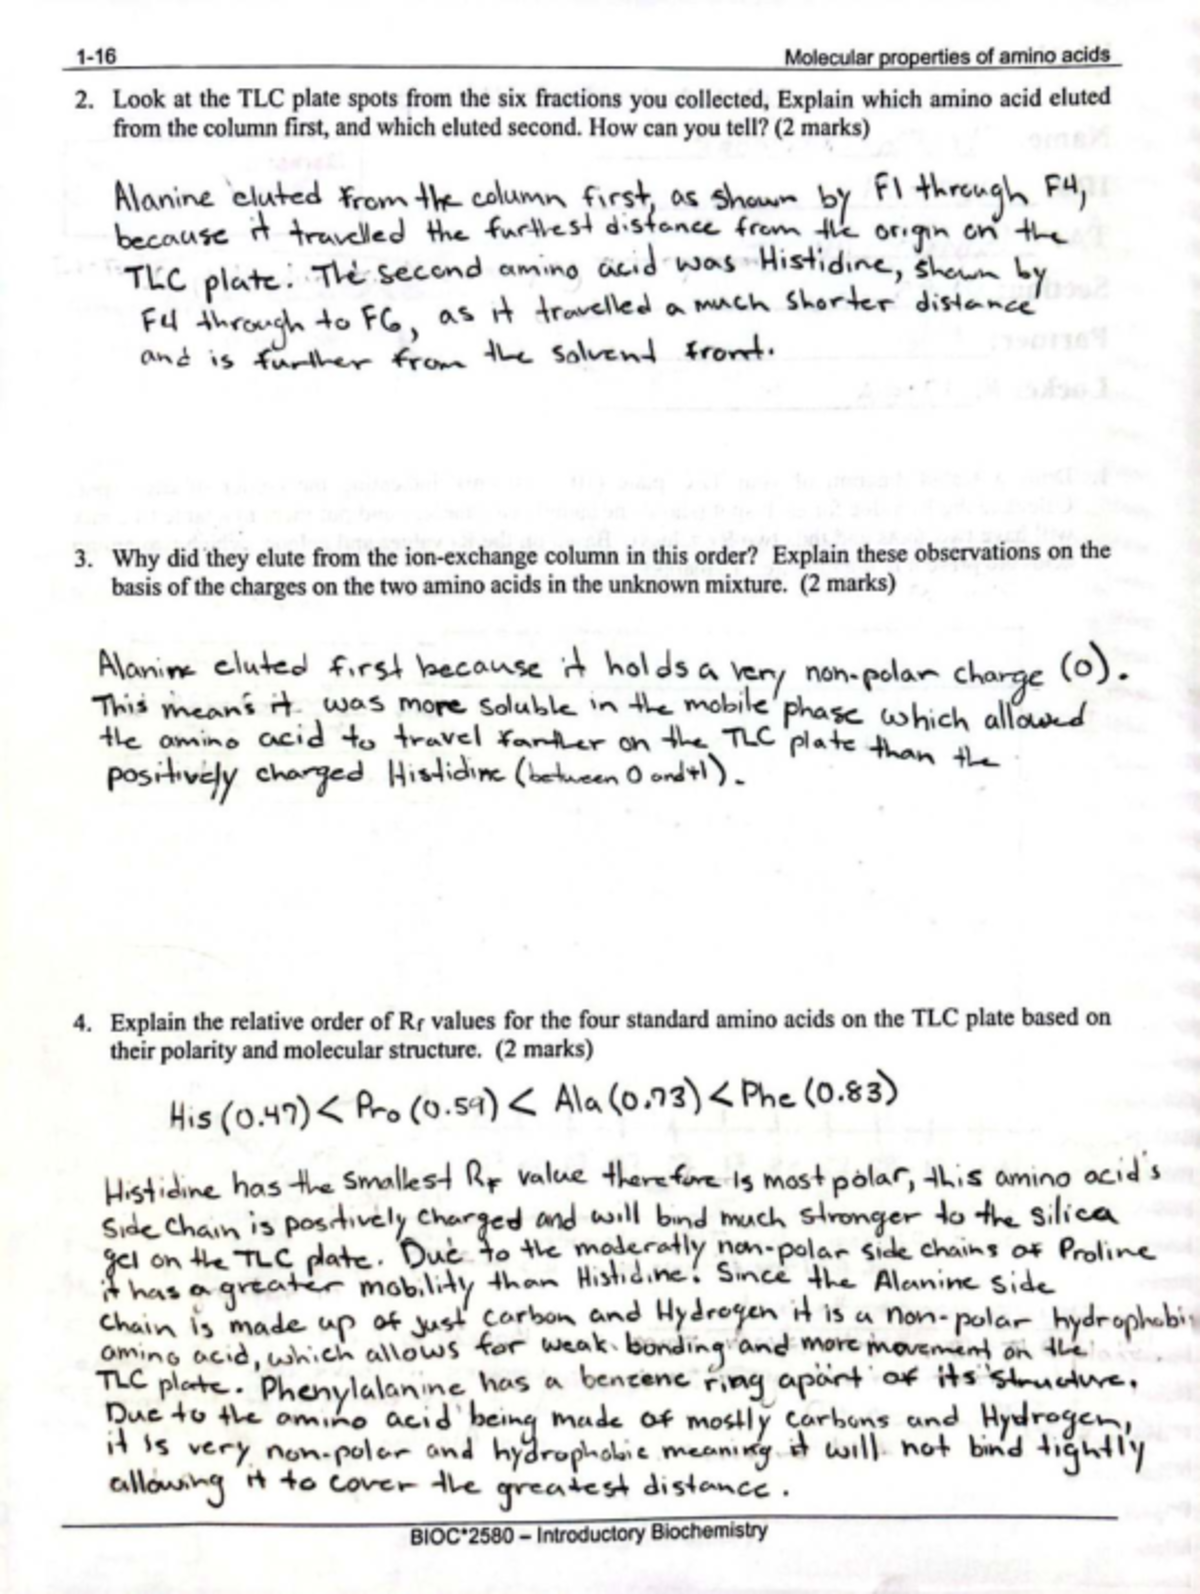 1-16 Molecular properties of amino acids
2. Look at the TLC plate spots from the six fractions you collected, Explain which amino acid eluted
from the column first, and which eluted second. How can you tell? (2 marks)
Alanine eluted from the column first, as shown by F1 through F4,
because it travelled the furthest distance from the origin on the
TLC plate. The second amino acid was Histidine, shown by
F4 through to F6, as it travelled a much shorter distance
and is further from the solvent front.
3. Why did they elute from the ion-exchange column in this order? Explain these observations on the
basis of the charges on the two amino acids in the unknown mixture. (2 marks)
Alanine eluted first because it holds a very non-polar charge (0).
This means it was more soluble in the mobile phase which allowed
the amino acid to travel farther on the TLC plate than the
positively charged Histidine (between 0 and +1).
4. Explain the relative order of Rf values for the four standard amino acids on the TLC plate based on
their polarity and molecular structure. (2 marks)
His (0.47) < Pro (0.59) < Ala (0.73) < Phe (0.83)
Histidine has the smallest RF value therefore is most polar, this amino acid's
side chain is positively charged and will bind much stronger to the silica
gel on the TLC plate. Due to the moderatly non-polar side chains of Proline
it has a greater mobility than Histidine. Since the Alanine side
chain is made up of just carbon and Hydrogen it is a non-polar hydrophobi
amino acid, which allows for weak bonding and more movement on the
TLC plate. Phenylalanine has a benzene ring apart of its structure.
Due to the amino acid being made of mostly carbons and Hydrogen,
it is very non-polar and hydrophobic meaning it will not bind tightly
allowing it to cover the greatest distance.
BIOC*2580 – Introductory Biochemistry